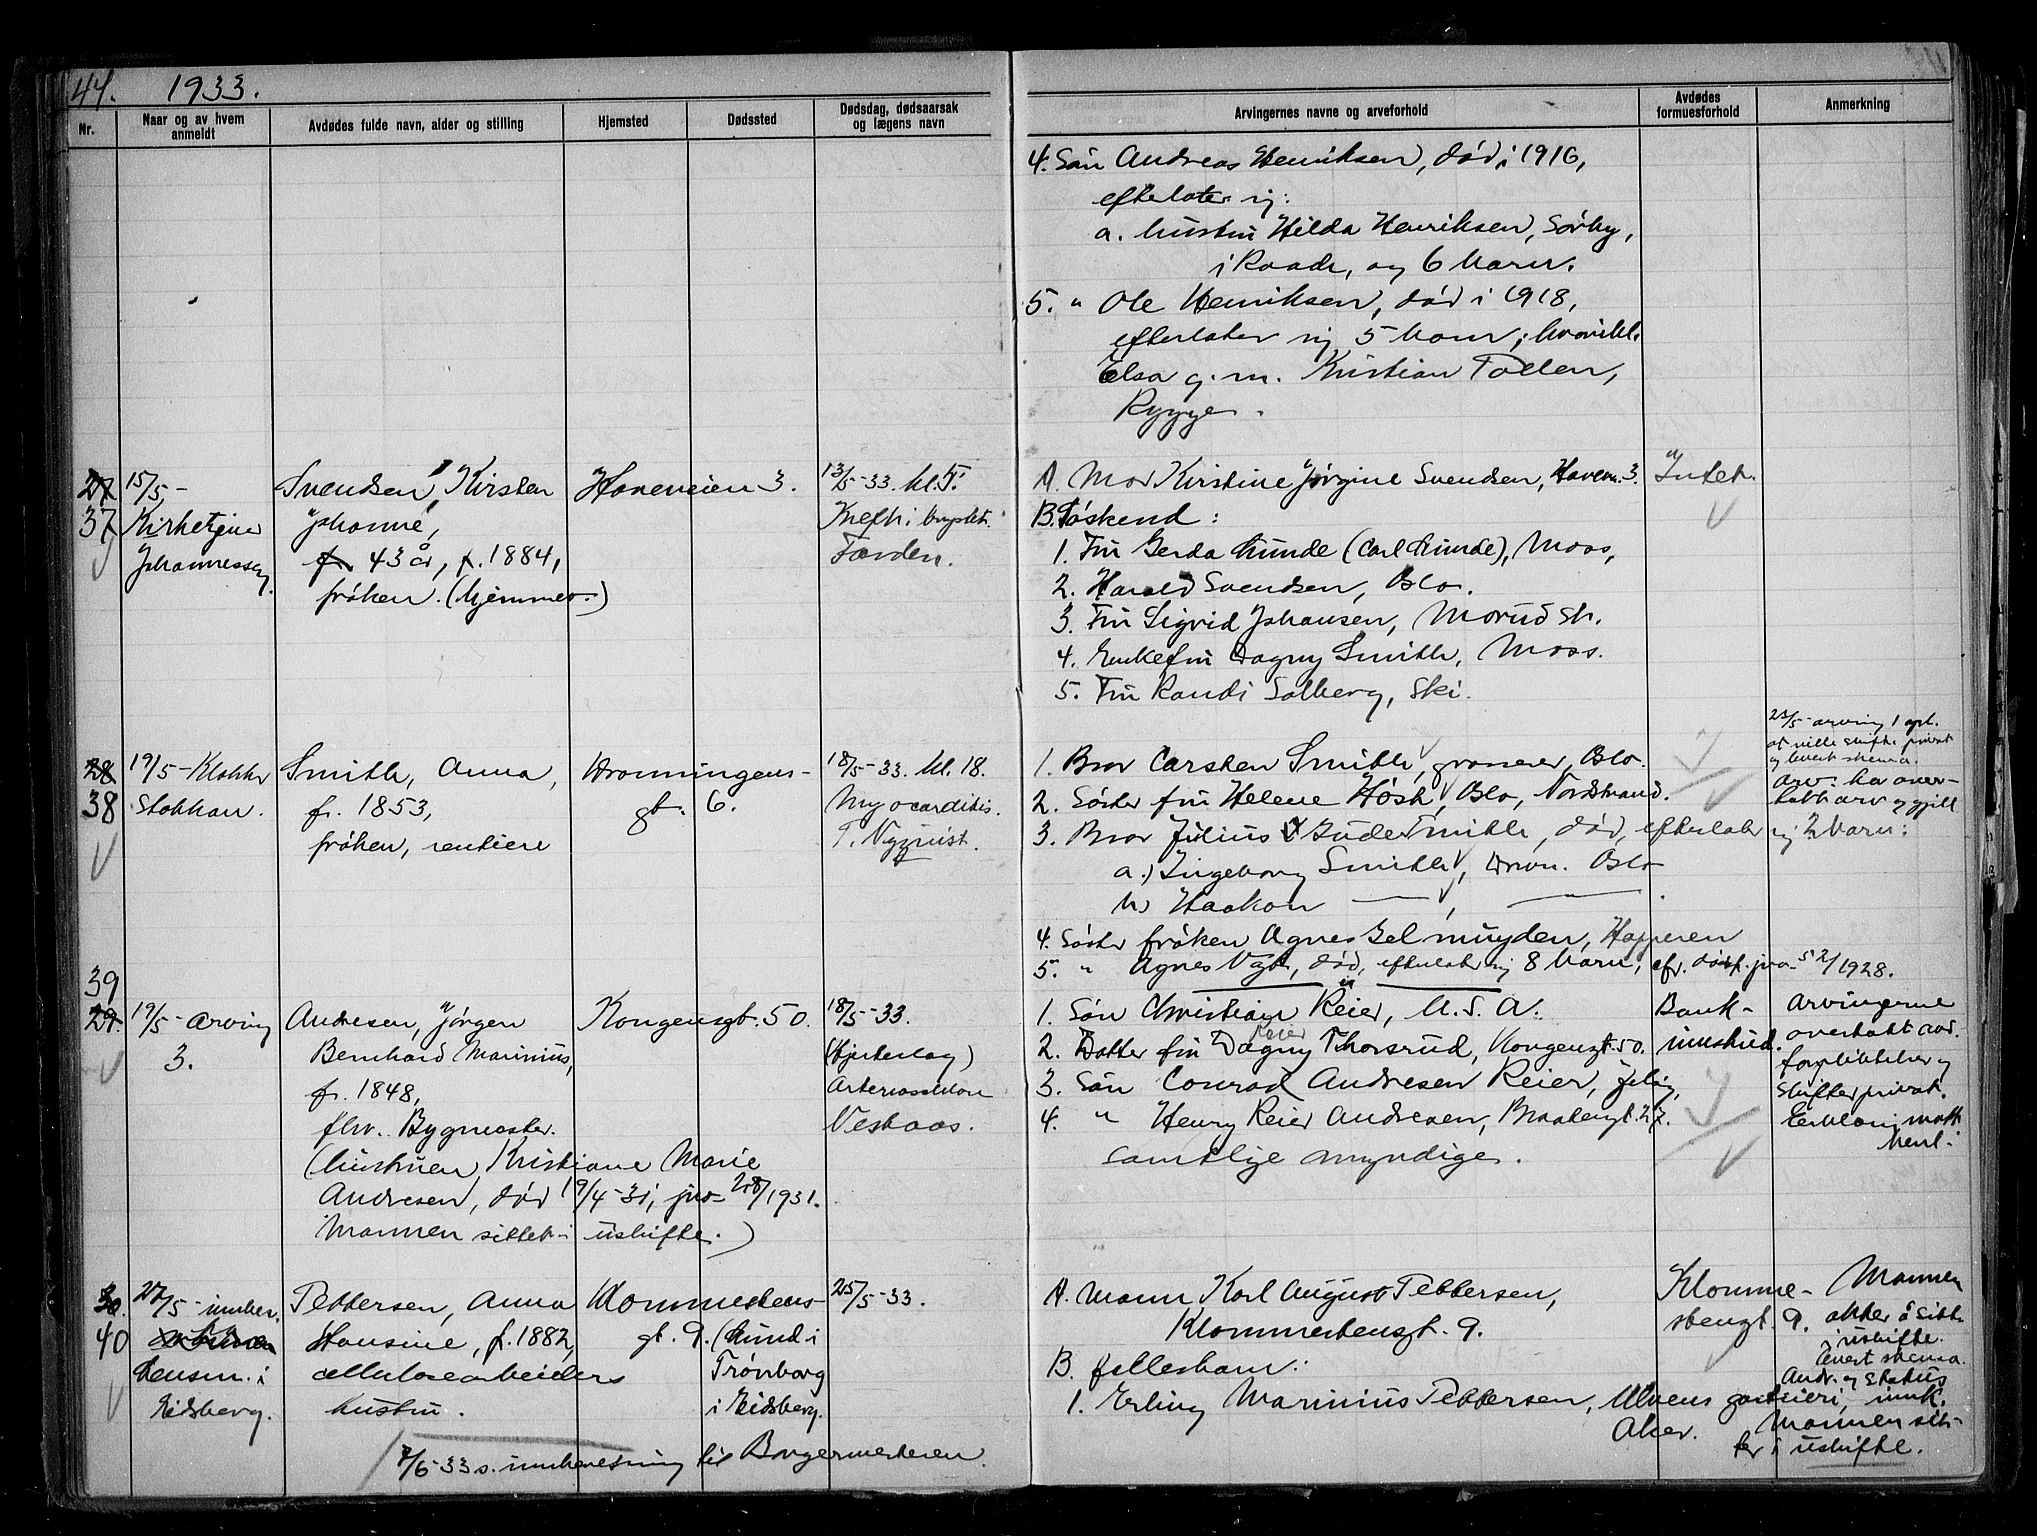 44. 1933.
Nr.
Naar og av hvem anmeldt
Avdødes fulde navn, alder og stilling
Hjemsted
Dødssted
Dødsdag, dødsaarsak og lægens navn
Arvingernes navne og arveforhold
Avdødes formuesforhold
Anmerkning
4. Søn Andreas Henriksen, død i 1916,
efterlater sig:
a. hustru Hilda Henriksen, Sørby,
i Raade, og 6 barn.
5. " Ole Henriksen, død i 1918,
efterlater sig 5 barn, hvoribl.
Elsa g. m. Kristian
Rygge.
27 37
15/5 - Kirketjener Johannessen
Svendsen, Kirsten
Johanne,
43 år, f. 1884,
frøken. (hjemmev.)
Haveveien 3.
13/5-33. kl.
Kreft i brystet.
A. Mor Kirstine Jørgine Svendsen, Havev. 3.
Intet.
B. Søskend:
1. Fru Gerda Lunde (Carl Lunde), Moss,
2. Harald Svendsen, Oslo.
3. Fru Sigrid Johansen, Morud st.
4. Enkefru Dagny Smith, Moss.
5. Fru Randi Solberg, Ski.
28 38
19/5 - Klokker
Stokkan.
Smith, Anna,
f. 1853,
frøken, rentiere
Dronningens-
gt. 6.
18/5-33. kl. 18.
Myocarditis.
T. Nyquist.
1. Bror Carsten Smith, grosserer, Oslo.
2. Søster fru Helene Høsk, Oslo, Nordstrand.
3. Bror Julius Gude Smith, død, efterlater sig 2 barn:
a.) Ingeborg Smith, Oslo
b) Haakon — , —
4. Søster frøken Agnes Gelmuyden, Hopperen
5. " Agnes Vogt, død, efterlater sig 8 barn, cfr. dødsf. pro- 52/1928.
23/5 - arving 1 opl.
at ville skifte privat
og levert skema.
39 29.
19/5 - Arving
3.
Andresen, Jørgen
Bernhard Marinius,
f. 1848,
fhv. Bygmester.
(hustruen Kristiane Marie
Andresen, død 19/4-31, pro- 28/1931.
Mannen sittet i uskifte.)
Kongensgt. 50.
18/5-33.
(hjerteslag)
Vestaas.
1. Søn Christian Reier, U.S.A.
2. Datter fru Dagny Reier Thorsrud, Kongensgt. 50.
3. Søn Conrad Andresen Reier, Jeløy,
4. " Henry Reier Andresen, 27.
samtlige myndige.
Bank-
innskud.
Arvingerne
overtatt avd.
forpliktelser og
skifter privat.
30. 40
27/5 - innber.
lensm. i
Eidsberg.
Pettersen, Anna
Hansine, f. 1882,
cellulosearbeiders
hustru.
Klommestens-
gt. 9.
(Lund i
Trønborg
i Eidsberg.
25/5-33.
A. Mann Karl August Pettersen,
Klommestensgt. 9.
B. fellesbarn:
1. Erling Marinius Pettersen, Ulvens
Aker.
Klomme-
stengt. 9.
Mannen
akter å sitte
i uskifte.
Levert skema.
Andr. og Status
innk.
Mannen sit-
ter i uskifte.
7/6-33 s. innberetning til Borgermesteren.